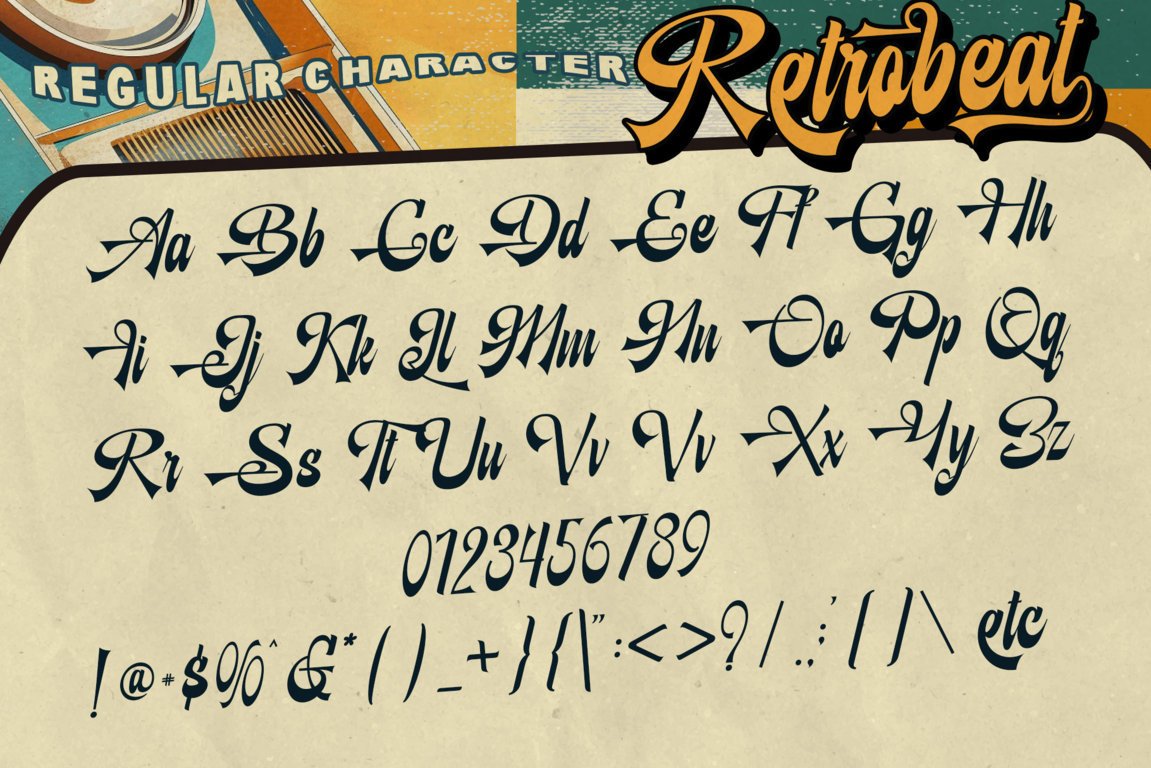 REGULAR CHARACTER
Retrobeat
Aa Bb Cc Dd Ee Ff Gg Hh
Ii Jj Kk Ll Mm Nn Oo Pp Qq
Rr Ss Tt Uu Vv Vv Xx Yy Zz
0123456789
! @ # $ % ^ & * ( ) _ + } { | " : < > ? / . , ; ' [ ] \ etc